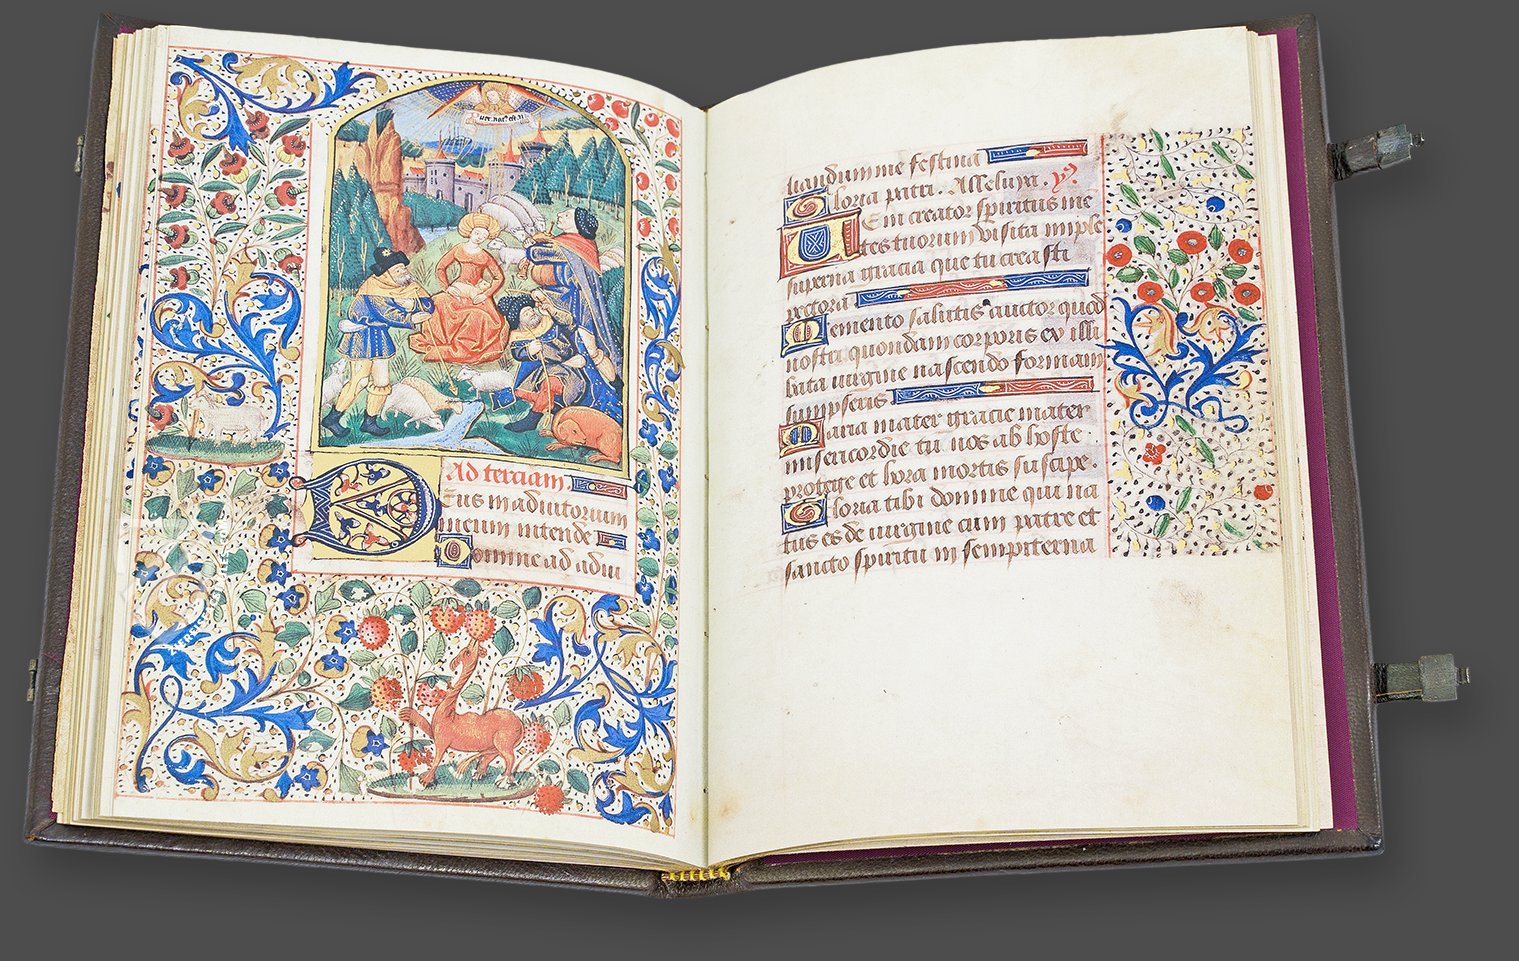 Ad terciam
Eus in adiutorium
meum intende
Domine ad adiu
uandum me festina
Gloria patri. Alleluya. y?
Eni creator spiritus me
tes tuorum visita imple
superna gracia que tu creasti
pectora
Memento salutis auctor quod
nostri quondam corporis ex illi
bata uirgine nascendo formam
sumpseris
Maria mater gracie mater
misericordie tu nos ab hoste
protege et hora mortis suscipe.
Gloria tibi domine qui na
tus es de uirgine cum patre et
sancto spiritu in sempiterna